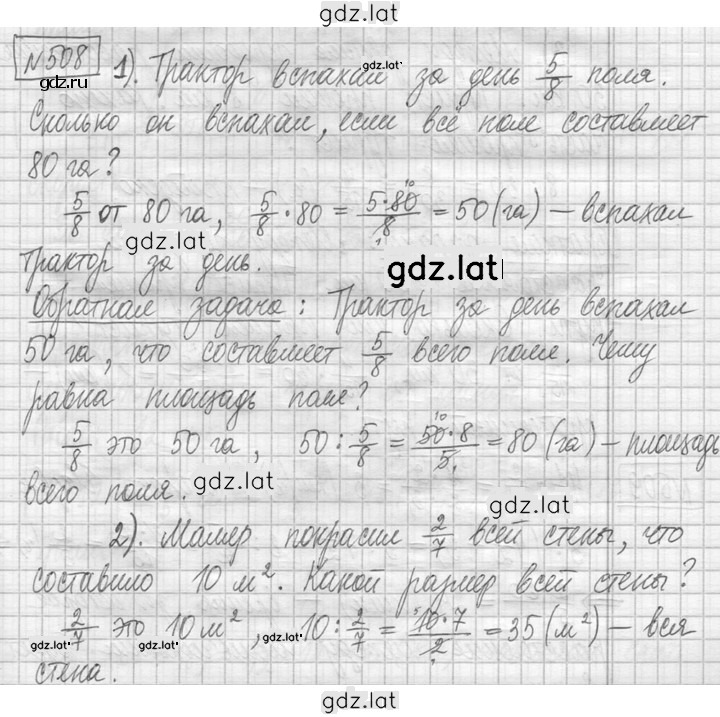 gdz.lat
№508
gdz.ru
1). Трактор вспахал за день 5/8 поля.
gdz.lat
Сколько он вспахал, если всё поле составляет
80 га?
5/8 от 80 га, 5/8 · 80 = 5·80/8 = 50 (га) – вспахал
10
1
gdz.lat
трактор за день.
gdz.lat
Обратная задача: Трактор за день вспахал
50 га, что составляет 5/8 всего поля. Чему
равна площадь поля?
5/8 это 50 га, 50 : 5/8 = 50·8/5 = 80 (га) – площадь
10
1
всего поля.
gdz.lat
gdz.lat
2). Маляр покрасил 2/7 всей стены, что
составило 10 м². Какой размер всей стены?
2/7 это 10 м², 10 : 2/7 = 10·7/2 = 35 (м²) – вся
5
1
gdz.lat
gdz.lat
gdz.lat
стена.
gdz.lat